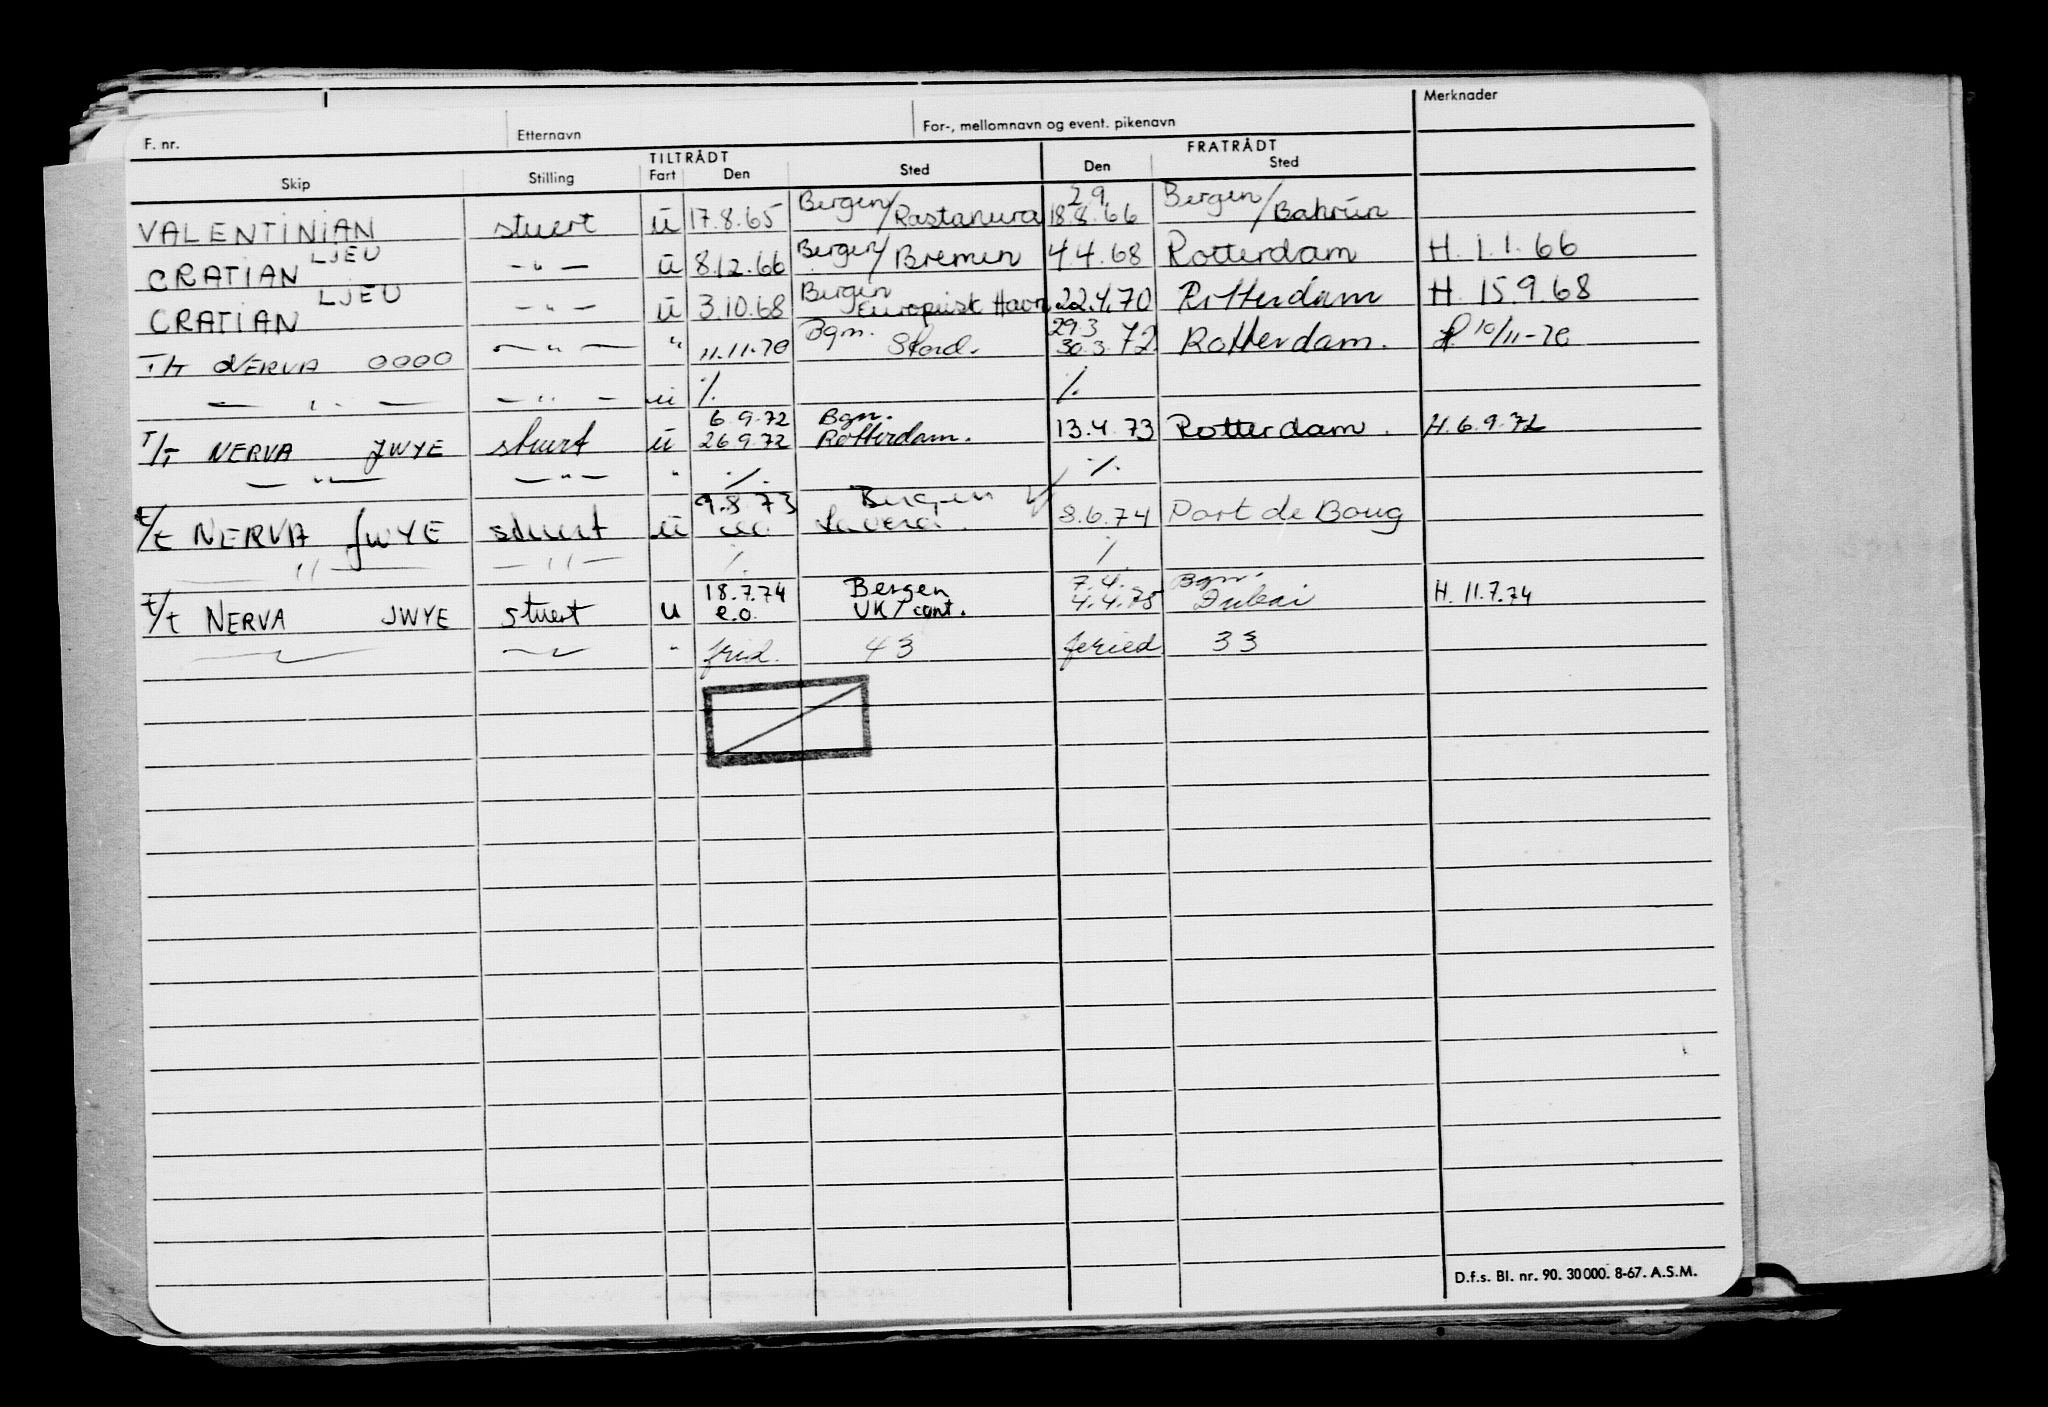 F. nr. Etternavn For-, mellomnavn og event. pikenavn Merknader
TILTRÅDT FRATRÅDT
Skip Stilling Fart Den Sted Den Sted
VALENTINIAN stuert ū 17.8.65 Bergen/Rastanura 2.9 18.8.66 Bergen/Bahrūn
CRATIAN LJEU -"- ū 8.12.66 Bergen/Bremen 4.4.68 Rotterdam H. 1.1.66
CRATIAN LJEU -"- ū 3.10.68 Bergen Europūsk Havn 22.4.70 Rotterdam H. 15.9.68
T/T NERVA OOOO -"- " 11.11.70 Bgn. Stord. 29.3 30.3.72 Rotterdam. H 10/11-70
-"- -"- ū ٪. ٪.
T/T NERVA JWYE stuert ū 6.9.72 26.9.72 Bgn. Rotterdam. 13.4.73 Rotterdam. H. 6.9.72
-"- -"- " ٪. ٪.
t/t NERVA JWYE stuert ū 9.8.73 Bergen Lavera. 8.6.74 Port de Boug
-"- -"- ٪. ٪.
t/t NERVA JWYE stuert u 18.7.74 e.o. Bergen UK/cont. 7.4. 4.4.75 Bgn. Dubai H. 11.7.74
" frid. 43 feried 33
D.f.s. Bl. nr. 90. 30000. 8-67. A.S.M.